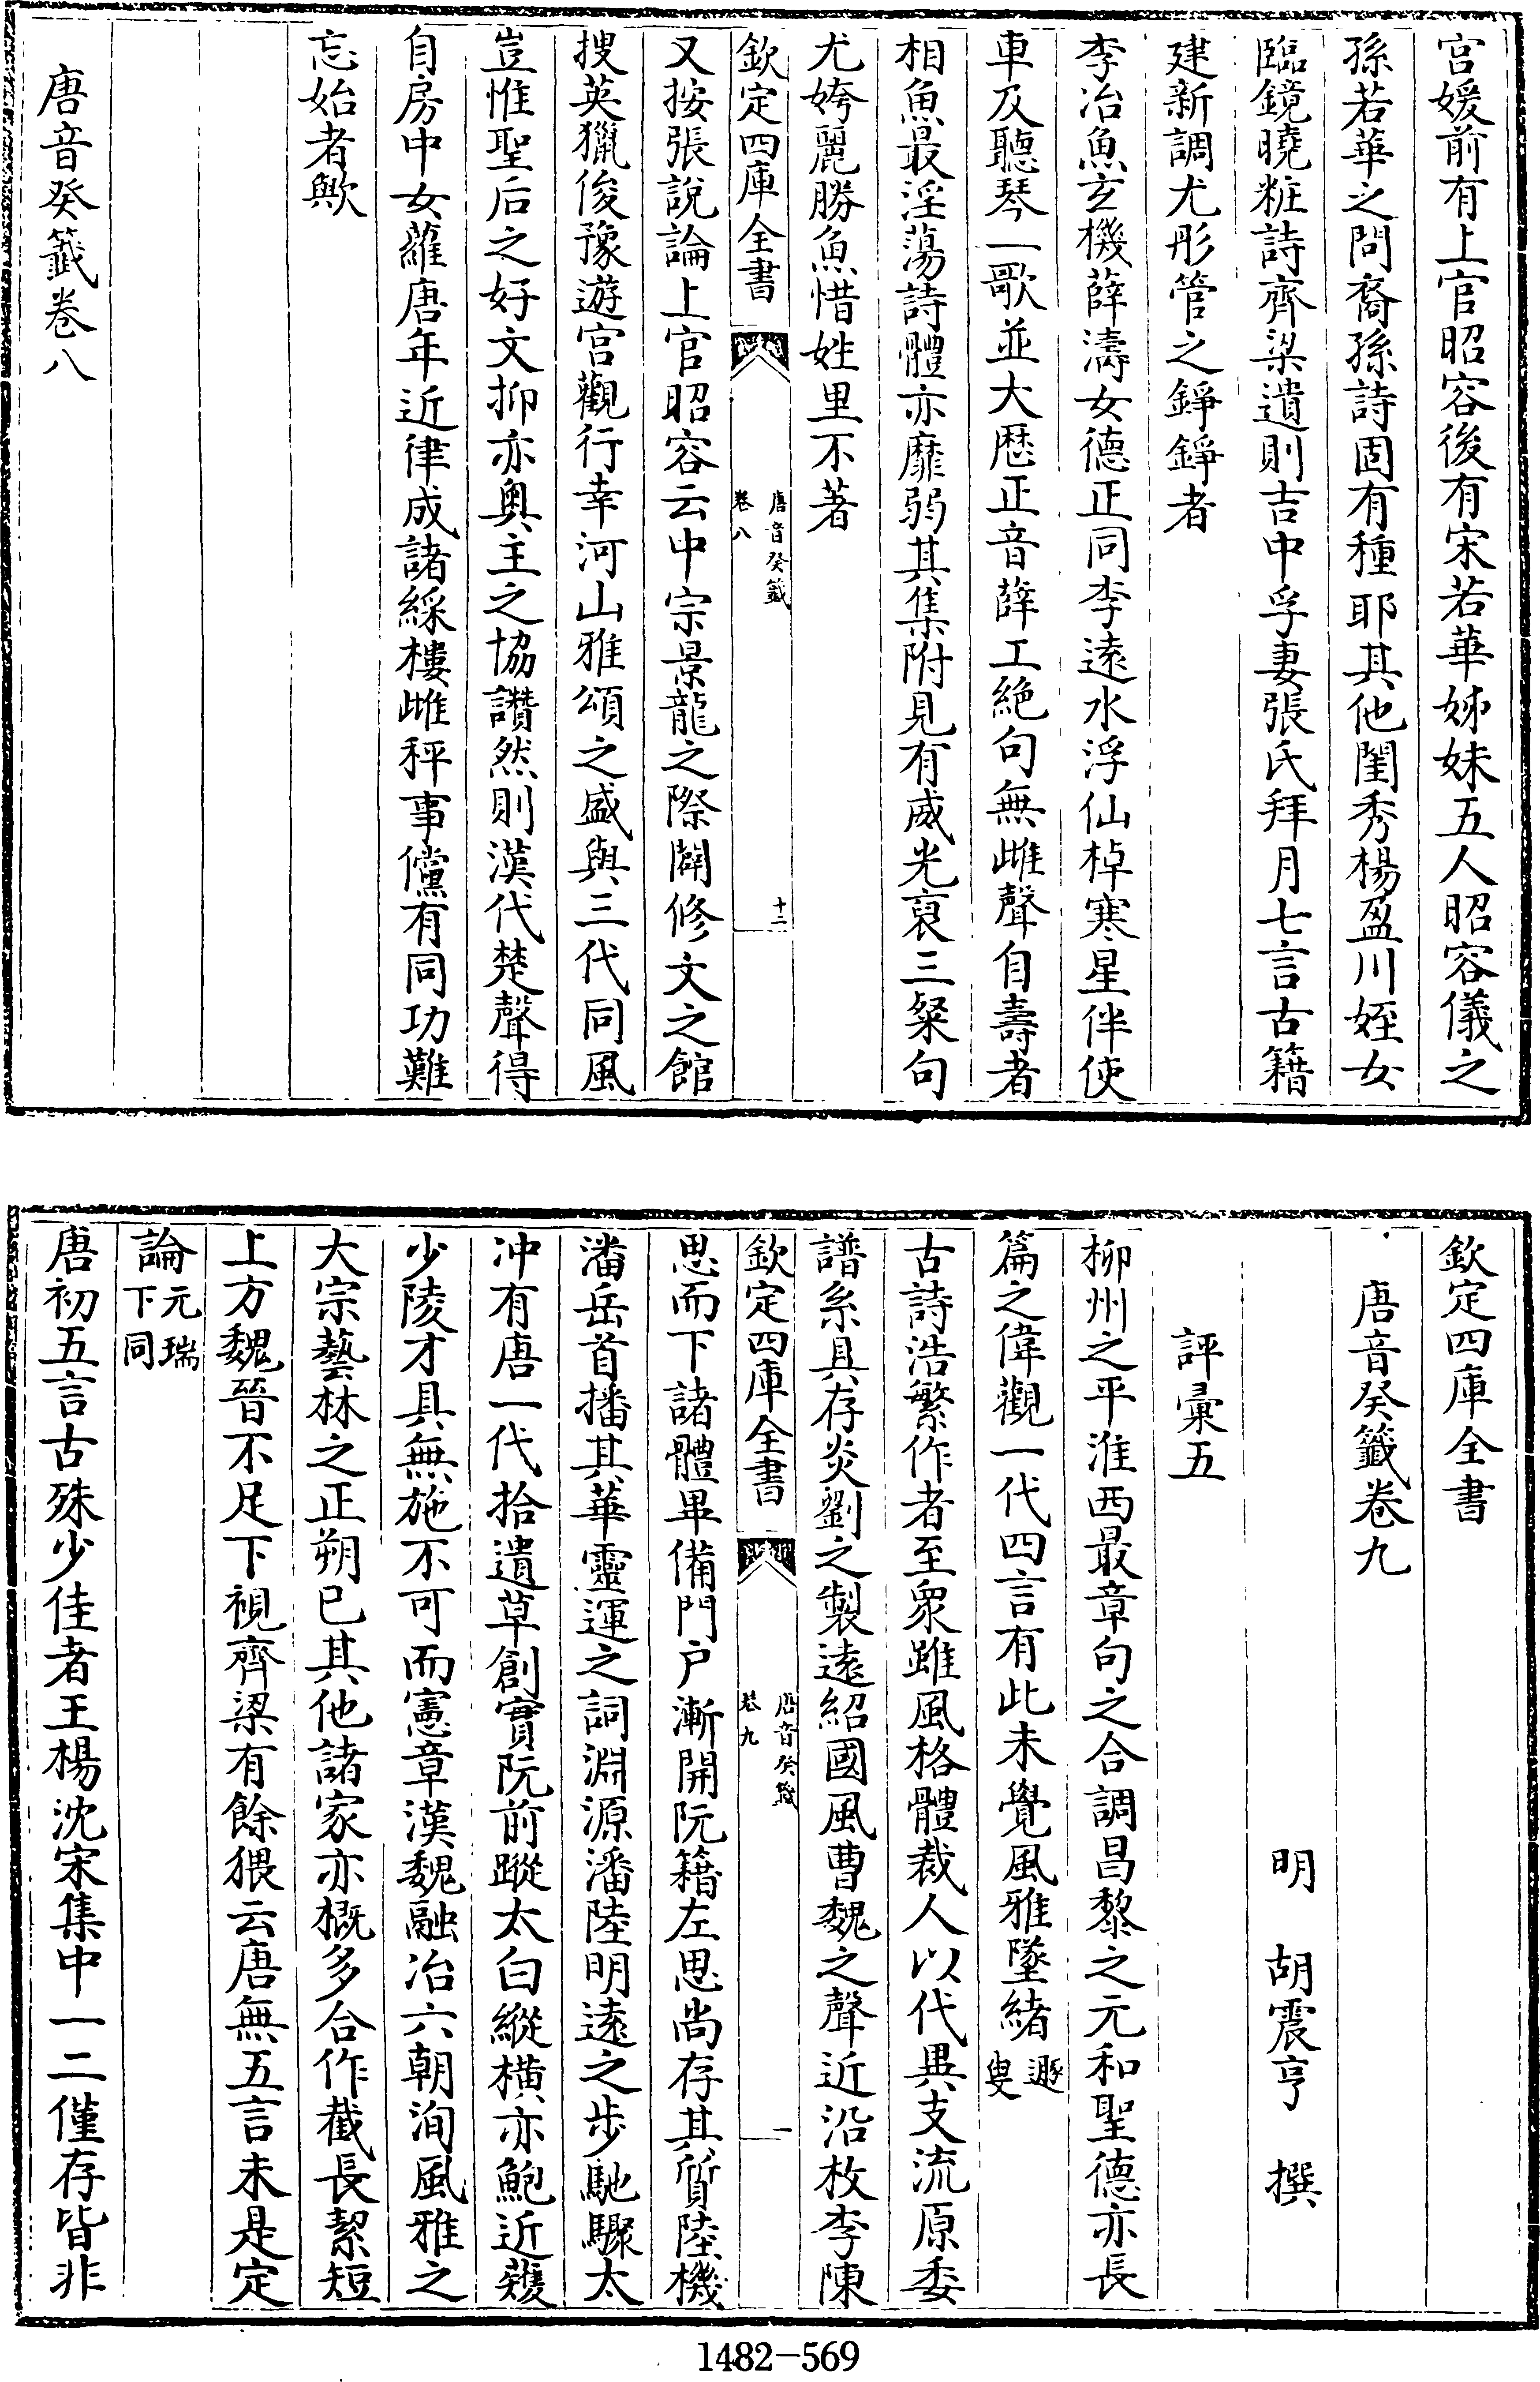 宫媛前有上官昭容後有宋若華姊妹五人昭容儀之
孫若華之問裔孫詩固有種耶其他閨秀楊盈川姪女
臨鏡曉粧詩齊梁遺則吉中孚妻張氏拜月七言古籍
建新調尤彤管之錚錚者
李冶魚玄機薛濤女德正同李遠水浮仙棹寒星伴使
車及聽琴一歌並大厯正音薛工絶句無雌聲自壽者
相魚最淫蕩詩體亦靡弱其集附見有威光裒三粲句
尤姱麗勝魚惜姓里不著
欽定四庫全書
唐音癸籤
卷八
十二
又按張說論上官昭容云中宗景龍之際闢修文之館
搜英獵俊豫遊宫觀行幸河山雅頌之盛與三代同風
豈惟聖后之好文抑亦奥主之協讚然則漢代楚聲得
自房中女蘿唐年近律成諸綵樓雌秤事儻有同功難
忘始者歟
唐音癸籤卷八
欽定四庫全書
唐音癸籤卷九
明 胡震亨 撰
評彚五
柳州之平淮西最章句之合調昌黎之元和聖德亦長
篇之偉觀一代四言有此未覺風雅墜緒遯叟
古詩浩繁作者至衆雖風格體裁人以代異支流原委
譜系具存炎劉之製遠紹國風曹魏之聲近沿枚李陳
欽定四庫全書
唐音癸籤
卷九
一
思而下諸體畢備門户漸開阮籍左思尚存其質陸機
潘岳首播其華靈運之詞淵源潘陸明遠之步馳驟太
冲有唐一代拾遺草創實阮前蹤太白縱横亦鮑近䕶
少陵才具無施不可而憲章漢魏融冶六朝洵風雅之
大宗藝林之正朔已其他諸家亦概多合作截長絜短
上方魏晉不足下視齊梁有餘猥云唐無五言未是定
論元瑞下同
唐初五言古殊少佳者王楊沈宋集中一二僅存皆非
1482-569